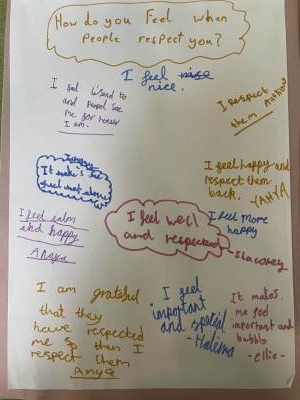 How do you Feel when
people respect you?
I feel nise
nice.
I feel
and
me for
I am.
I respect
them Anthony
It makes me
feel
I feel happy and
respect them
back.
YAHYA
I feel calm
and happy
Anaya
I feel well
and respected
I feel more
happy
I am grateful
that they
have respected
me so then I
respect them
Anya
I feel
important
and special
- Halema
It makes
me feel
important and
bubbly
- Ellie -